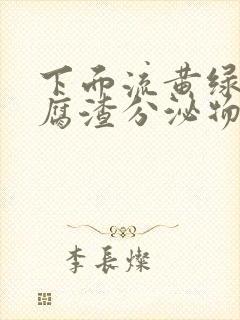 下面流黄绿
腐渣分泌物
李長燦